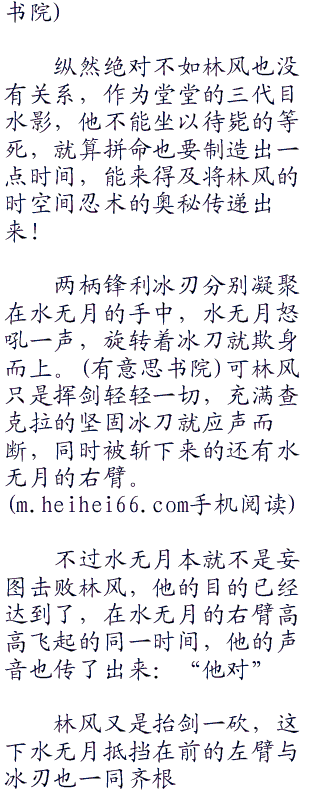 书院)
纵然绝对不如林风也没
有关系，作为堂堂的三代目
水影，他不能坐以待毙的等
死，就算拼命也要制造出一
点时间，能来得及将林风的
时空间忍术的奥秘传递出
来！
两柄锋利冰刃分别凝聚
在水无月的手中，水无月怒
吼一声，旋转着冰刀就欺身
而上。(有意思书院)可林风
只是挥剑轻轻一切，充满查
克拉的坚固冰刀就应声而
断，同时被斩下来的还有水
无月的右臂。
(m.heihei66.com手机阅读)
不过水无月本就不是妄
图击败林风，他的目的已经
达到了，在水无月的右臂高
高飞起的同一时间，他的声
音也传了出来：“他对”
林风又是抬剑一砍，这
下水无月抵挡在前的左臂与
冰刃也一同齐根